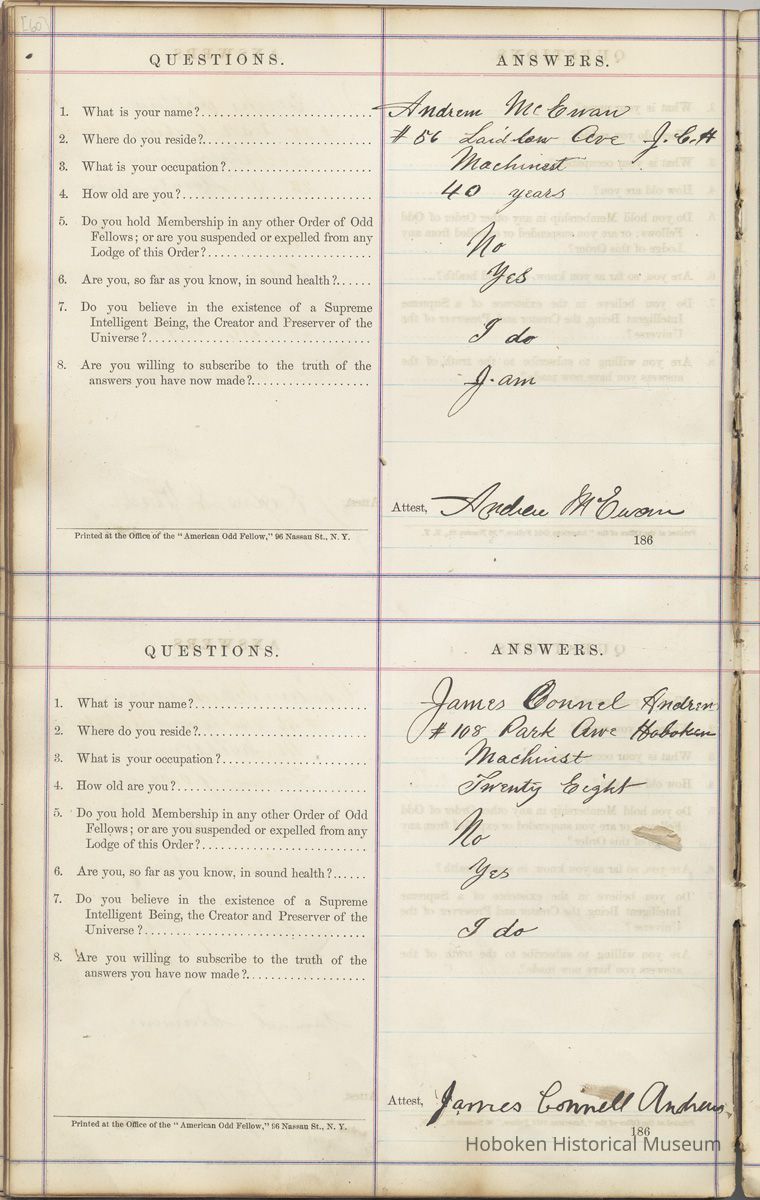 [60]
QUESTIONS. ANSWERS.
1. What is your name?........................... Andrew McEwan
2. Where do you reside?........................... # 56 Laidlaw Ave J.C.H
3. What is your occupation?........................... Machinist
4. How old are you?........................... 40 years
5. Do you hold Membership in any other Order of Odd
Fellows; or are you suspended or expelled from any
Lodge of this Order?........................... No
6. Are you, so far as you know, in sound health?...... Yes
7. Do you believe in the existence of a Supreme
Intelligent Being, the Creator and Preserver of the
Universe?........................... I do
8. Are you willing to subscribe to the truth of the
answers you have now made?................... I am
Attest, Andrew McEwan
Printed at the Office of the "American Odd Fellow," 96 Nassau St., N. Y.
186
QUESTIONS. ANSWERS.
1. What is your name?........................... James Connel Andrew
2. Where do you reside?........................... # 108 Park Ave Hoboken
3. What is your occupation?........................... Machinist
4. How old are you?........................... Twenty Eight
5. Do you hold Membership in any other Order of Odd
Fellows; or are you suspended or expelled from any
Lodge of this Order?........................... No
6. Are you, so far as you know, in sound health?...... Yes
7. Do you believe in the existence of a Supreme
Intelligent Being, the Creator and Preserver of the
Universe?........................... I do
8. Are you willing to subscribe to the truth of the
answers you have now made?...................
Attest, James Connell Andrews
Printed at the Office of the "American Odd Fellow," 96 Nassau St., N. Y.
186
Hoboken Historical Museum